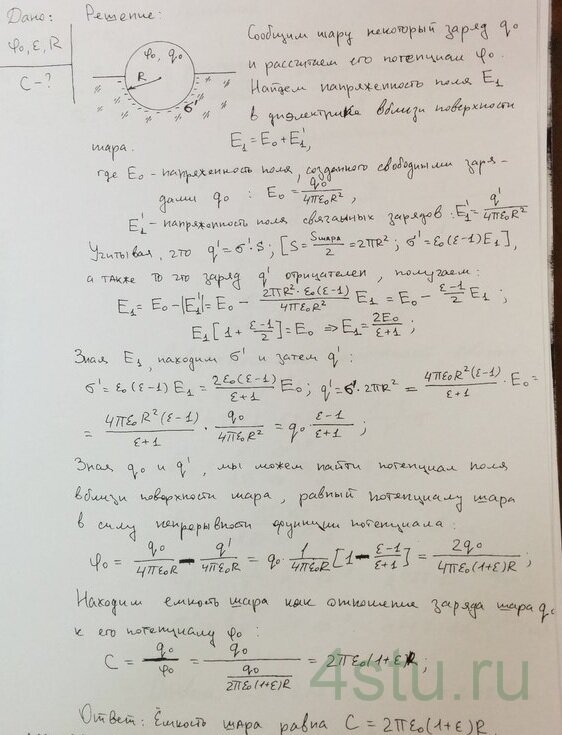 Дано:
φ₀, ε, R
C - ?
Решение:
φ₀, q₀
R
σ'
Сообщим шару некоторый заряд q₀
и рассчитаем его потенциал φ₀.
Найдем напряженность поля E₁
в диэлектрике вблизи поверхности
шара.
E₁ = E₀ + E₁',
где E₀ - напряженность поля, созданного свободными заря-
дами q₀ : E₀ = q₀/4πε₀R²,
E₁' - напряженность поля связанных зарядов: E₁' = q'/4πε₀R²
Учитывая, что q' = σ'·S; [S = Sшара/2 = 2πR²; σ' = ε₀(ε-1)E₁],
а также то что заряд q' отрицателен, получаем:
E₁ = E₀ - |E₁'| = E₀ - 2πR²·ε₀(ε-1)/4πε₀R² E₁ = E₀ - ε-1/2 E₁ ;
E₁[1 + ε-1/2] = E₀ ⇒ E₁ = 2E₀/ε+1 ;
Зная E₁, находим σ' и затем q' :
σ' = ε₀(ε-1)E₁ = 2ε₀(ε-1)/ε+1 E₀; q' = σ'·2πR² = 4πε₀R²(ε-1)/ε+1 · E₀ =
= 4πε₀R²(ε-1)/ε+1 · q₀/4πε₀R² = q₀ ε-1/ε+1 ;
Зная q₀ и q', мы можем найти потенциал поля
вблизи поверхности шара, равный потенциалу шара
в силу непрерывности функции потенциала :
φ₀ = q₀/4πε₀R - q'/4πε₀R = q₀·1/4πε₀R [1 - ε-1/ε+1] = 2q₀/4πε₀(1+ε)R ;
Находим емкость шара как отношение заряда шара q₀
к его потенциалу φ₀ :
C = q₀/φ₀ = q₀/(q₀/2πε₀(1+ε)R) = 2πε₀(1+ε)R ;
4stu.ru
Ответ: Ёмкость шара равна C = 2πε₀(1+ε)R.